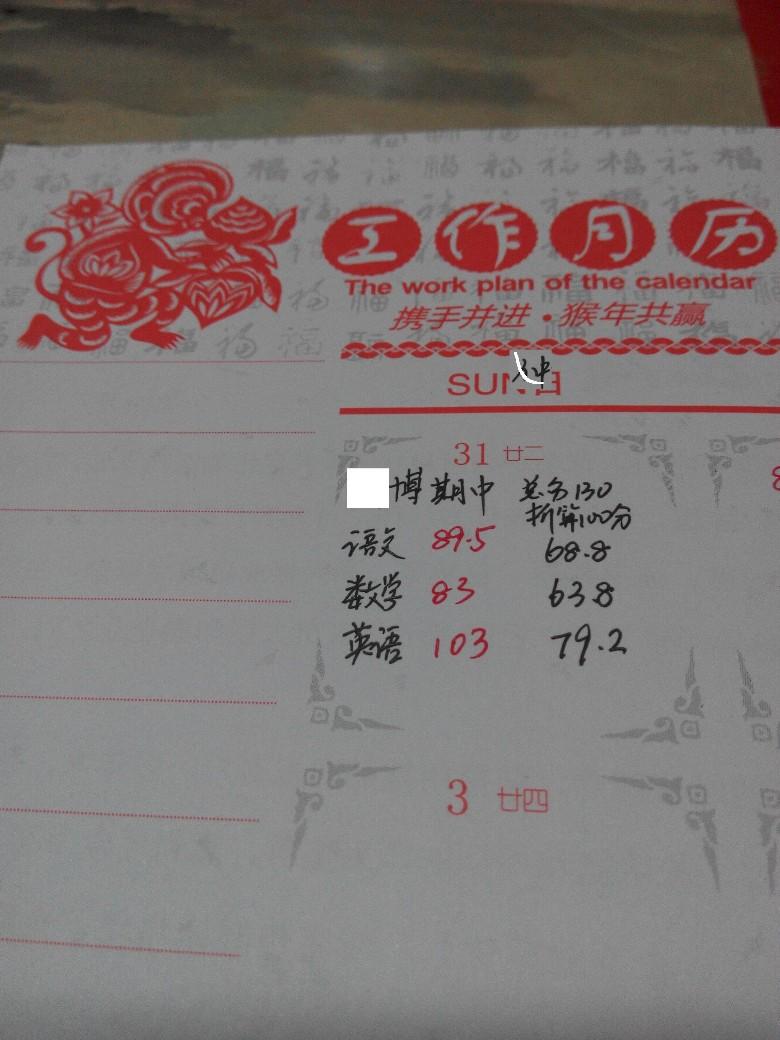 工作月历
The work plan of the calendar
携手并进·猴年共赢
SUN日
31 廿二
博期中 总分130
折算100分
语文 89.5 68.8
数学 83 63.8
英语 103 79.2
3 廿四